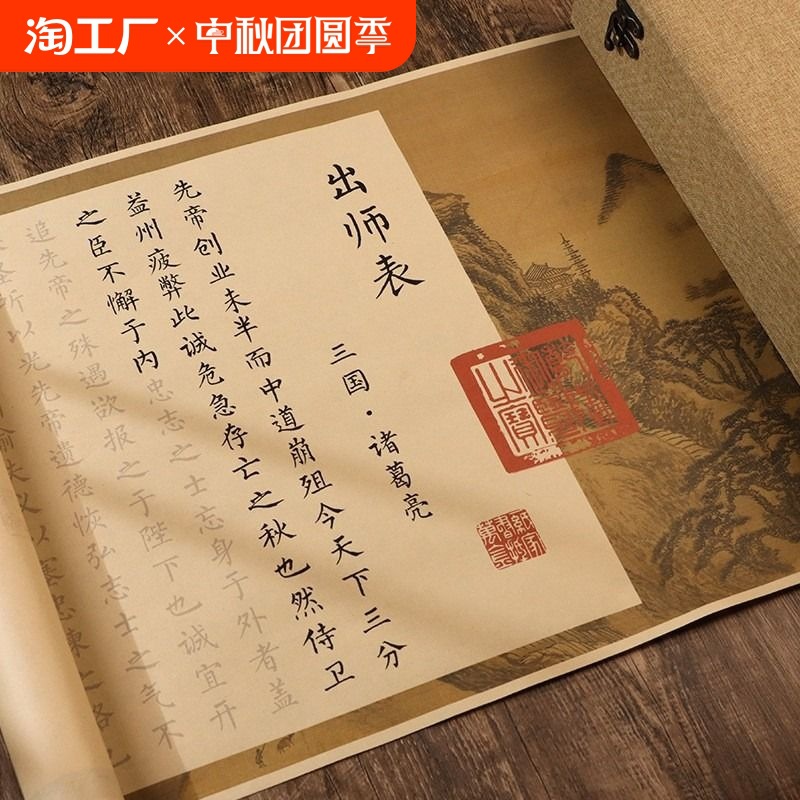 淘工厂×中秋团圆季
出师表
三国·诸葛亮
先帝创业未半而中道崩殂今天下三分
益州疲弊此诚危急存亡之秋也然侍卫
之臣不懈于内忠志之士忘身于外者盖
追先帝之殊遇欲报之于陛下也诚宜开
圣听以光先帝遗德恢弘志士之气不
喻失义以塞忠谏之路也
山寶